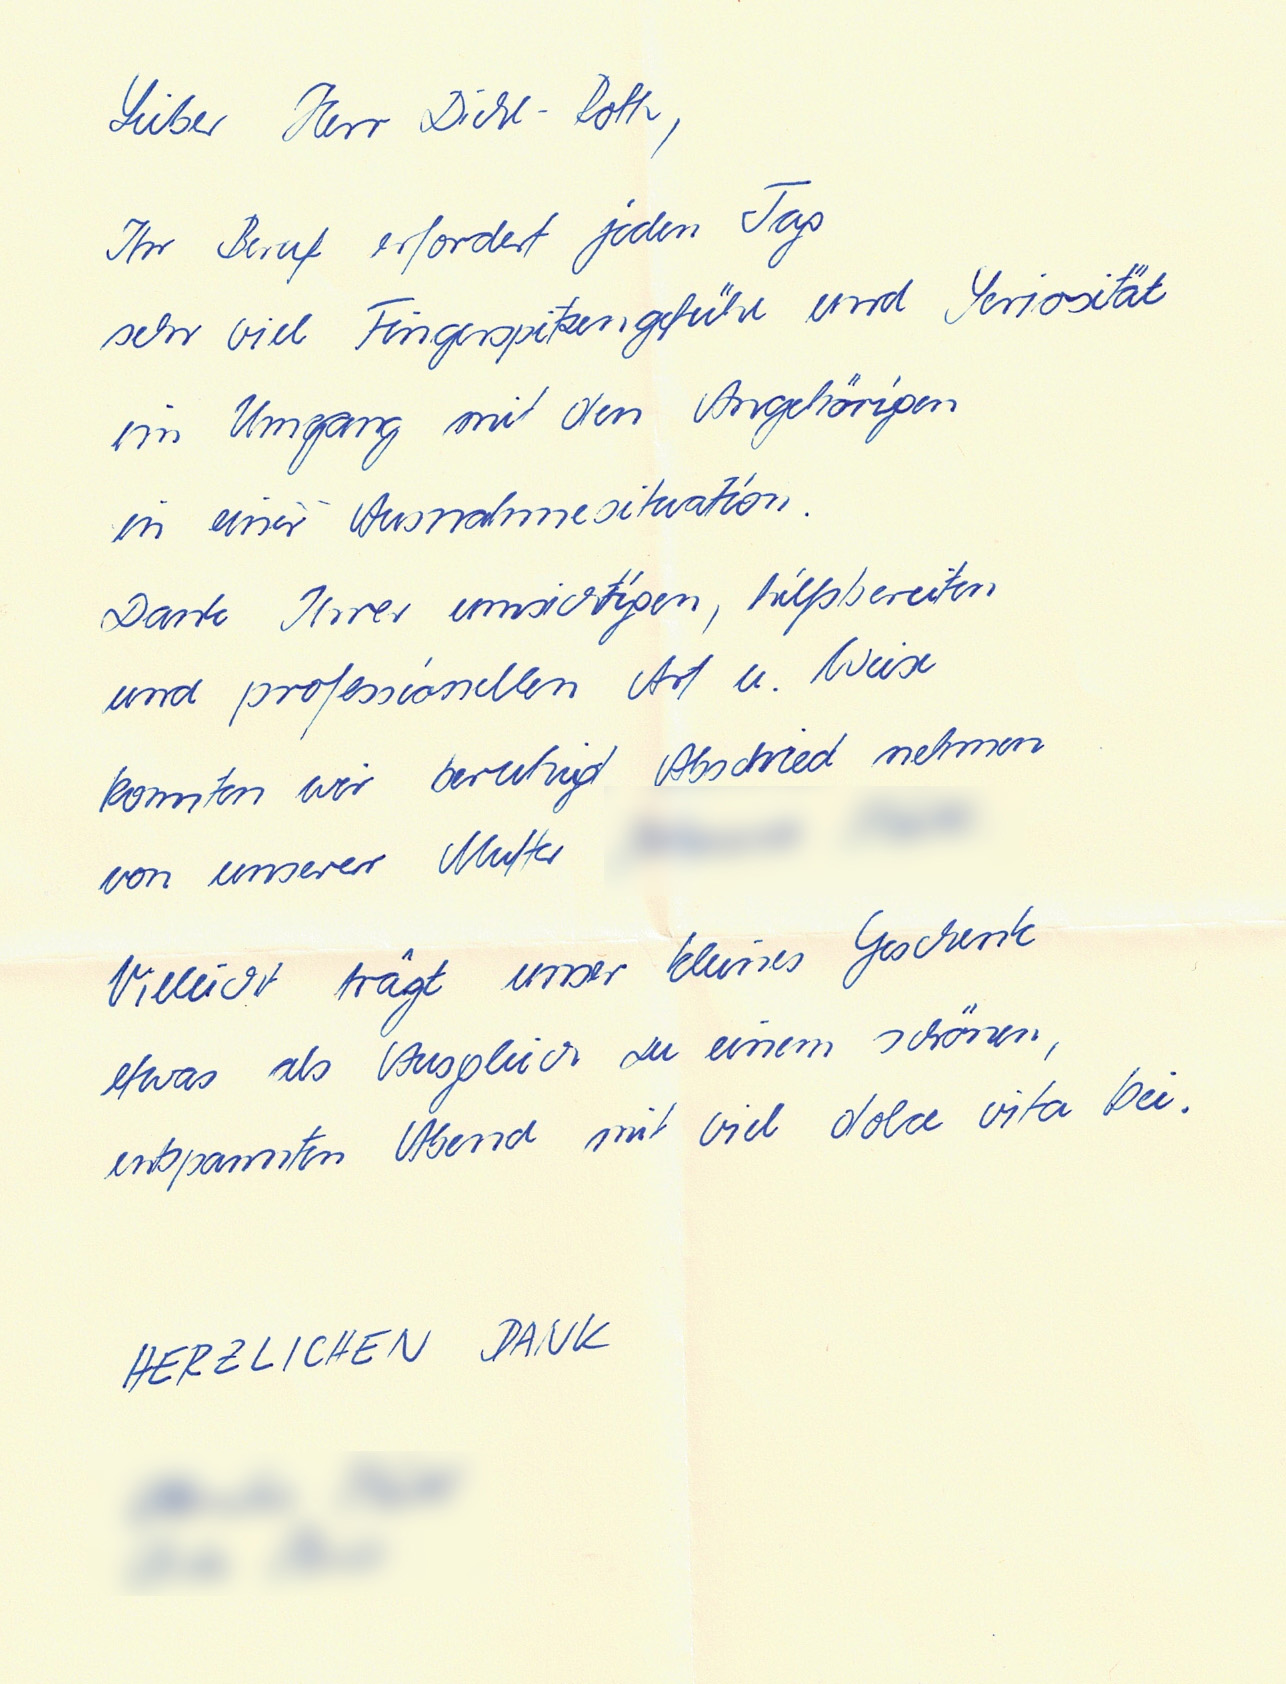 Lieber Herr Diehl-Roth,
Ihr Beruf erfordert jeden Tag
sehr viel Fingerspitzengefühl und Seriosität
im Umgang mit den Angehörigen
in einer Ausnahmesituation.
Dank Ihrer umsichtigen, hilfsbereiten
und professionellen Art u. Weise
konnten wir beruhigt Abschied nehmen
von unserer Mutter
Vielleicht trägt unser kleines Geschenk
etwas als Ausgleich zu einem schönen,
entspannten Abend mit viel dolce vita bei.
HERZLICHEN DANK